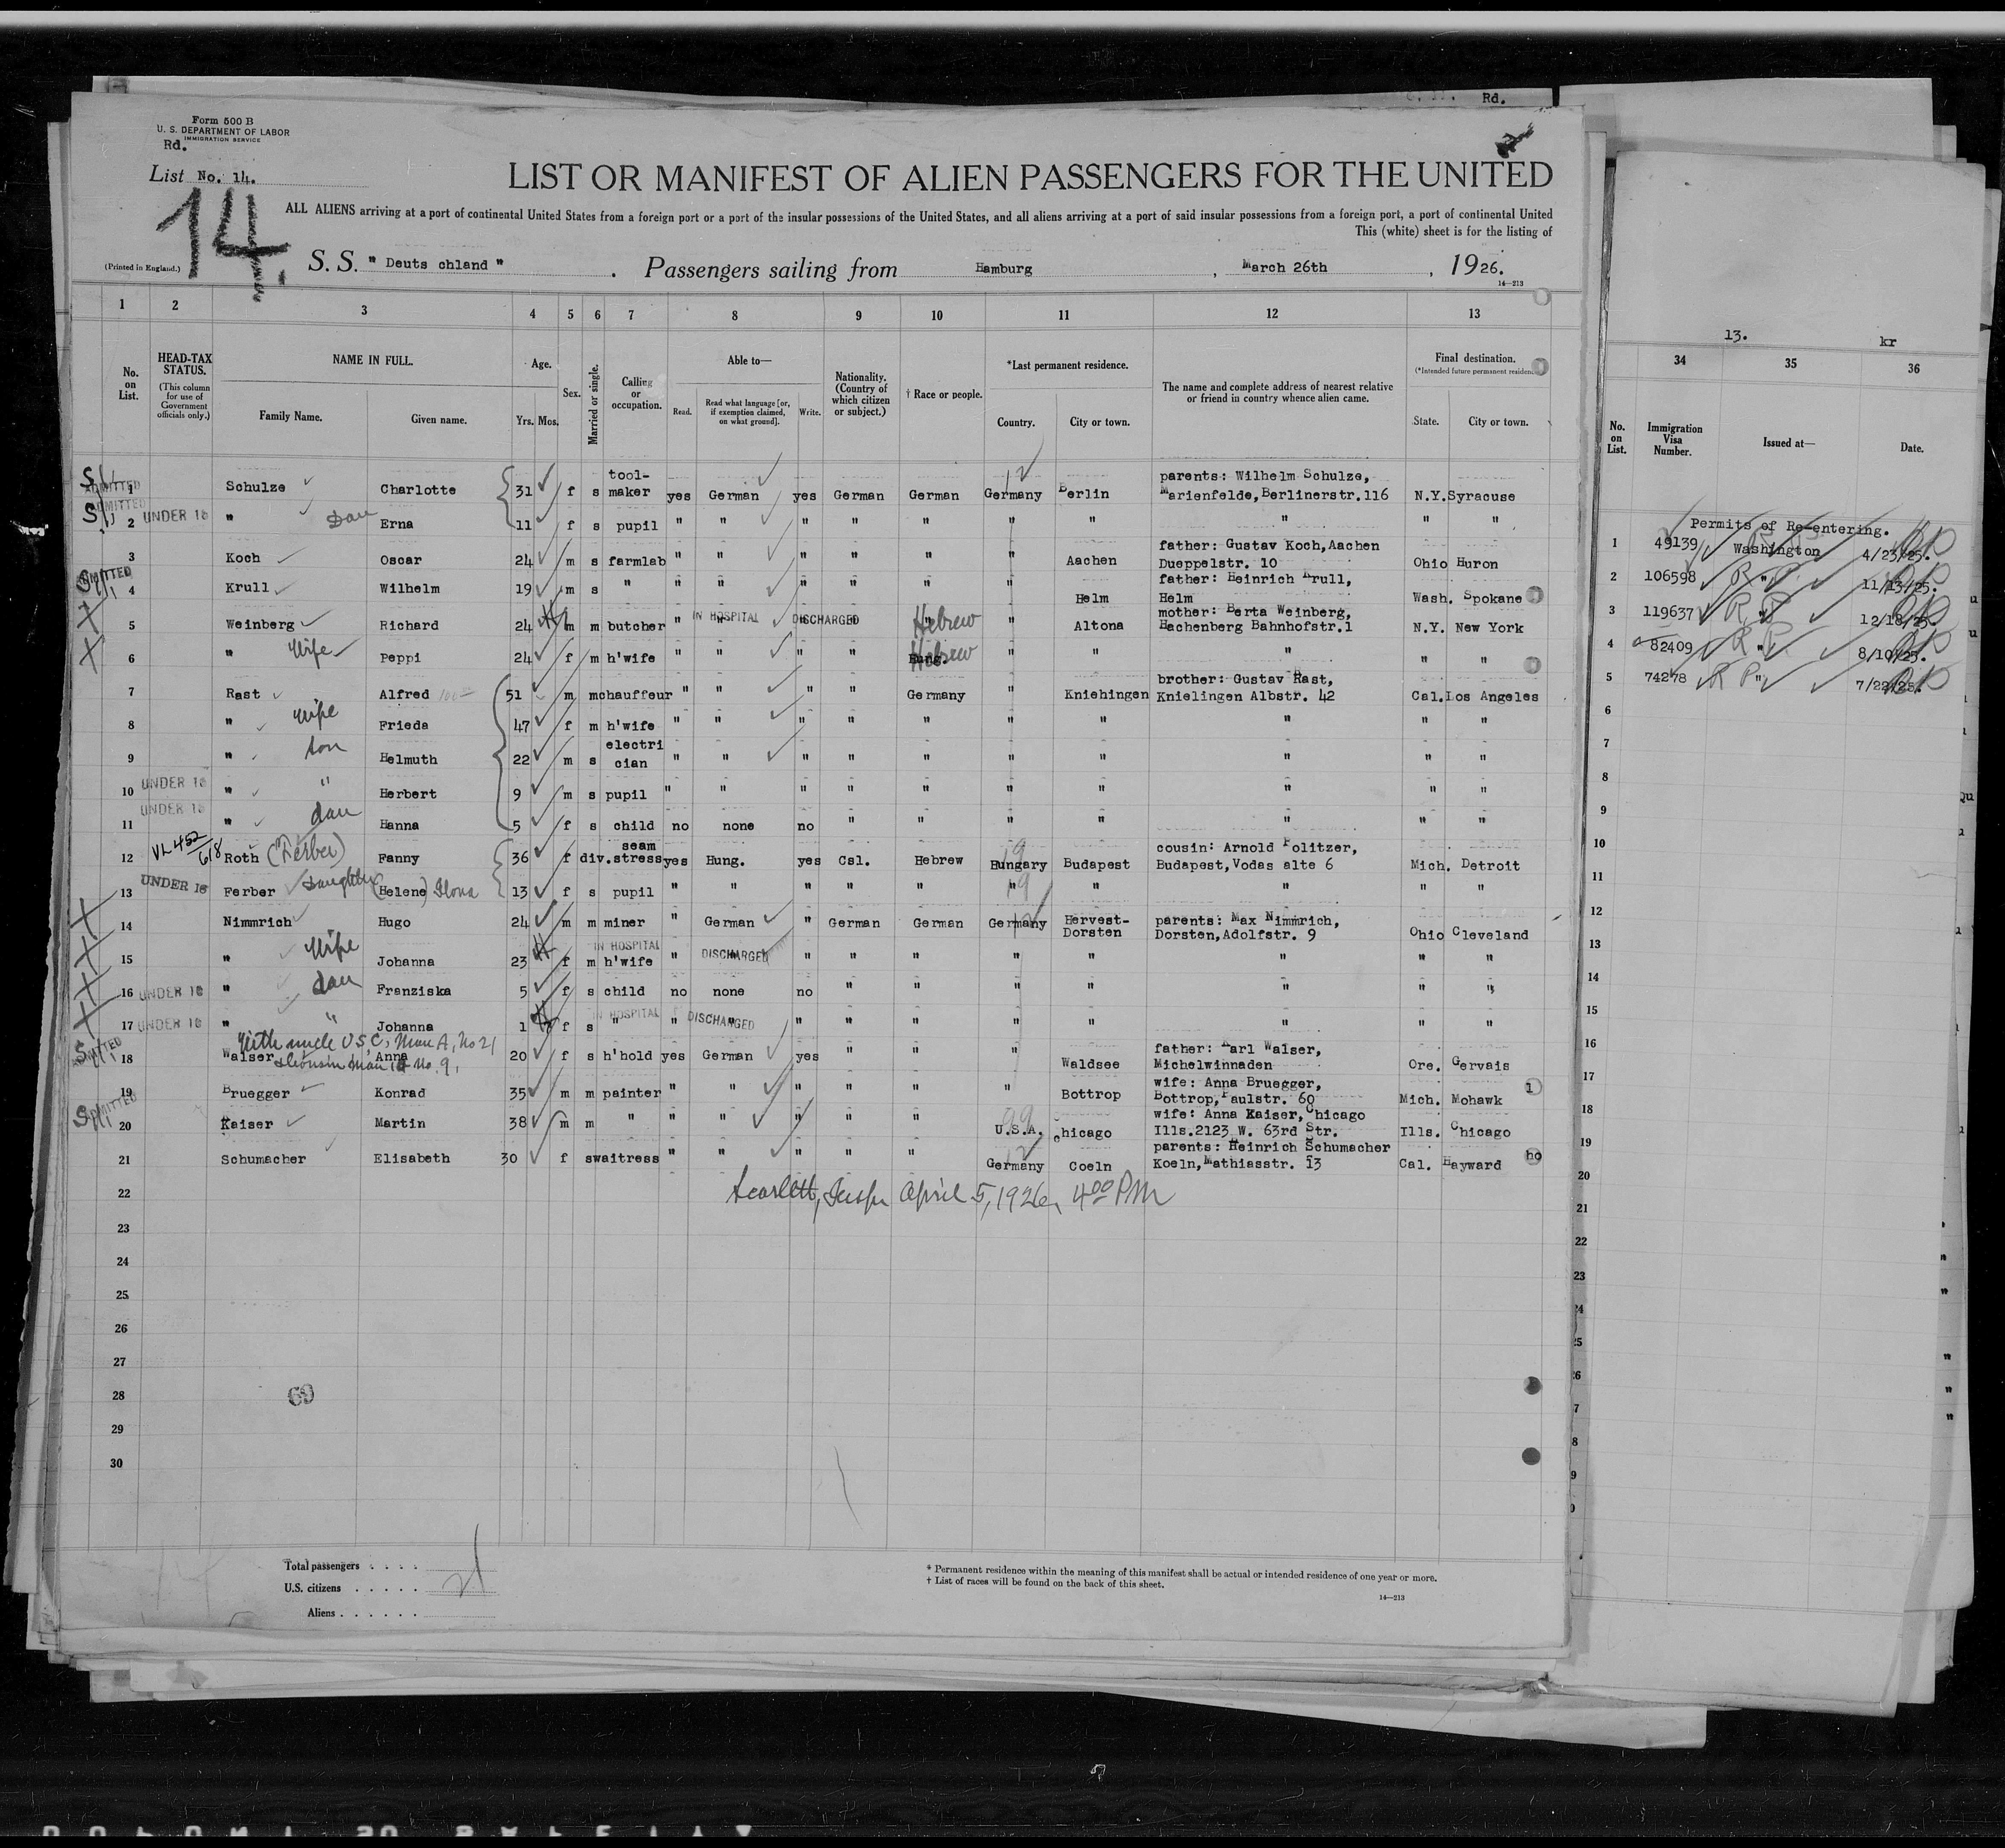 Rd.
Form 500 B
U. S. DEPARTMENT OF LABOR
IMMIGRATION SERVICE
Rd.
List No. 14.
14.
LIST OR MANIFEST OF ALIEN PASSENGERS FOR THE UNITED
ALL ALIENS arriving at a port of continental United States from a foreign port or a port of the insular possessions of the United States, and all aliens arriving at a port of said insular possessions from a foreign port, a port of continental United
This (white) sheet is for the listing of
(Printed in England.)
S. S. " Deuts chland " . Passengers sailing from Hamburg , March 26th , 1926.
14—213
1 2 3 4 5 6 7 8 9 10 11 12 13
No. on List.
HEAD-TAX STATUS.
(This column for use of Government officials only.)
NAME IN FULL.
Family Name. Given name.
Age.
Yrs. Mos.
Sex.
Married or single.
Calling or occupation.
Able to—
Read. Read what language [or, if exemption claimed, on what ground]. Write.
Nationality. (Country of which citizen or subject.)
† Race or people.
*Last permanent residence.
Country. City or town.
The name and complete address of nearest relative or friend in country whence alien came.
Final destination.
(*Intended future permanent residence
State. City or town.
ADMITTED 1 Schulze Charlotte 31 f s tool-maker yes German yes German German Germany Berlin parents: Wilhelm Schulze, Marienfelde, Berlinerstr.116 N.Y. Syracuse
ADMITTED 2 UNDER 16 " Dau Erna 11 f s pupil " " " " " " " " " "
3 Koch Oscar 24 m s farmlab " " " " " " Aachen father: Gustav Koch, Aachen Dueppelstr. 10 Ohio Huron
ADMITTED 4 Krull Wilhelm 19 m s " " " " " " " Helm father: Heinrich Krull, Helm Wash. Spokane
5 Weinberg Richard 24 m m butcher " IN HOSPITAL " DISCHARGED " Hebrew " Altona mother: Berta Weinberg, Hachenberg Bahnhofstr.1 N.Y. New York
6 " Wife Peppi 24 f m h'wife " " " " Hung. Hebrew " " " " "
7 Rast Alfred 51 m m chauffeur " " " " Germany " Kniehingen brother: Gustav Rast, Knielingen Albstr. 42 Cal. Los Angeles
8 " Wife Frieda 47 f m h'wife " " " " " " " " " "
9 " son Helmuth 22 m s electrician " " " " " " " " " "
10 UNDER 16 " " Herbert 9 m s pupil " " " " " " " " " "
11 UNDER 16 " dau Hanna 5 f s child no none no " " " " " " "
12 VL 452/618 Roth (Ferber) Fanny 36 f div. seamstress yes Hung. yes Csl. Hebrew Hungary Budapest cousin: Arnold Politzer, Budapest, Vodas alte 6 Mich. Detroit
13 UNDER 16 Ferber Daughter (Helene) Ilona 13 f s pupil " " " " " " " " " "
14 Nimmrich Hugo 24 m m miner " German " German German Germany Hervest-Dorsten parents: Max Nimmrich, Dorsten, Adolfstr. 9 Ohio Cleveland
15 " Wife Johanna 23 f m h'wife IN HOSPITAL " DISCHARGED " " " " " " " "
16 UNDER 16 " dau Franziska 5 f s child no none no " " " " " " "
17 UNDER 16 " " Johanna 1 f s " IN HOSPITAL " DISCHARGED " " " " " " " "
With uncle U S C, Man A, No 21
ADMITTED 18 Walser Anna 20 f s h'hold yes German yes " " " Waldsee father: Karl Walser, Michelwinnaden Ore. Gervais
& Cousin Man No. 9.
19 Bruegger Konrad 35 m m painter " " " " " " Bottrop wife: Anna Bruegger, Bottrop, Paulstr. 60 Mich. Mohawk
ADMITTED 20 Kaiser Martin 38 m m " " " " " " U.S.A. Chicago wife: Anna Kaiser, Chicago Ills. 2123 W. 63rd Str. Ills. Chicago
21 Schumacher Elisabeth 30 f s waitress " " " " " Germany Coeln parents: Heinrich Schumacher Koeln, Mathiasstr. 13 Cal. Hayward
22 Scarlett, Insp. April 5, 1926, 4 00 PM
23
24
25
26
27
28
69
29
30
Total passengers . . . .
U.S. citizens . . . . . 21
Aliens . . . . . .
* Permanent residence within the meaning of this manifest shall be actual or intended residence of one year or more.
† List of races will be found on the back of this sheet.
14—213
13. kr
34 35 36
No. on List. Immigration Visa Number. Issued at— Date.
Permits of Re-entering.
1 49139 Washington 4/23/25.
2 106598 R P " 11/13/25.
3 119637 R P " 12/18/25.
4 82409 R P " 8/10/25.
5 74278 R P " 7/22/25.
6
7
8
9
10
11
12
13
14
15
16
17
18
19
20
21
22
23